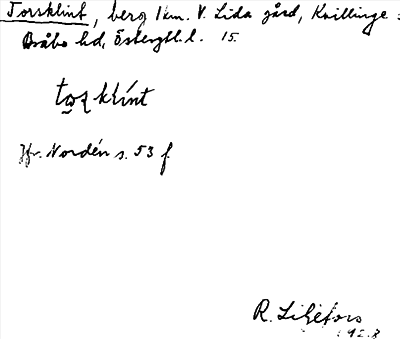 Torsklint, berg 1 km. V. Lida gård, Kvillinge s
Bråbo hd, Östergötl. l. 15.
tꞷʂklint
Jfr. Nordén s. 53 f
R. Liljefors